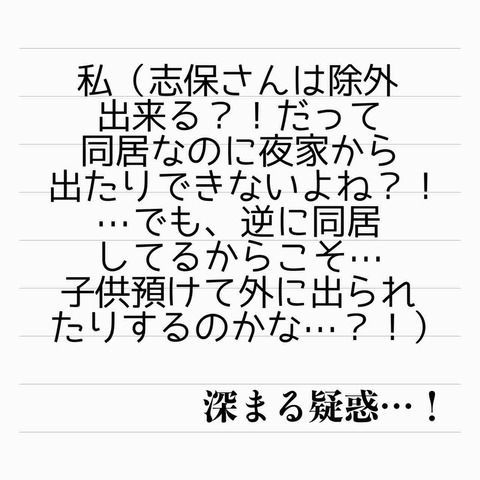 私（志保さんは除外
出来る？！だって
同居なのに夜家から
出たりできないよね？！
…でも、逆に同居
してるからこそ…
子供預けて外に出られ
たりするのかな…？！）
深まる疑惑…！